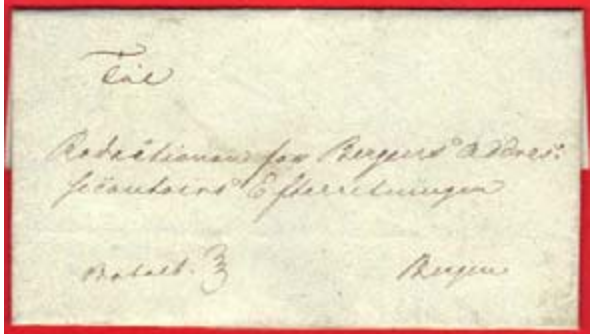 Til
Redactionen for Bergens Addres:
secontoirs Efterretninger
Betalt. Bergen